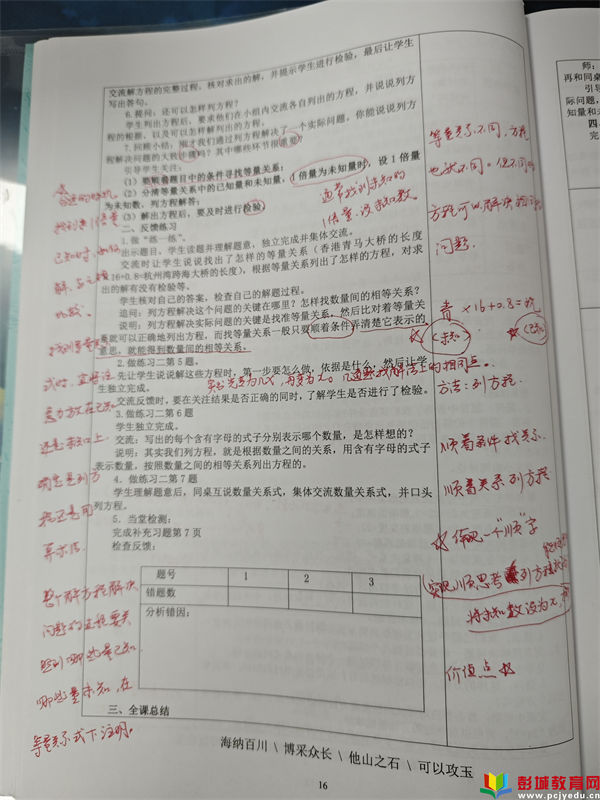 交流解方程的完整过程，核对求出的解，并提示学生进行检验，最后让学生
写出答句。
6.提问：还可以怎样列方程？
学生列出方程后，要求他们在小组内交流各自列出的方程，并说说列方
程的根据，以及可以怎样解列出的方程。
7.回顾小结：刚才我们通过列方程解决了一个实际问题，你能说说列方
程解决问题的大致步骤吗？其中哪些环节很重要？
引导学生关注：
（1）要根据题目中的条件寻找等量关系；
（2）分清等量关系中的已知量和未知量，1倍量为未知量时，设1倍量
为未知数，列方程解答；
（3）解出方程后，要及时进行检验。
二、反馈练习
1.做“练一练”。
出示题目，学生读题并理解题意，独立完成并集体交流。
交流时让学生说说找出了怎样的等量关系（香港青马大桥的长度
×16+0.8=杭州湾跨海大桥的长度），根据等量关系列出了怎样的方程，对求
出的解有没有检验等。
学生核对自己的答案，检查自己的解题过程。
追问：列方程解决这个问题的关键在哪里？怎样找数量间的相等关系？
说明：列方程解决实际问题的关键是找准等量关系，然后比对着等量关
系就可以正确地列出方程，而找等量关系一般只要顺着条件弄清楚它表示的
意思，就能得到数量间的相等关系。
2.做练习二第5题。
先让学生说说解这些方程时，第一步要怎么做，依据是什么，然后让学
生独立完成。
交流反馈时，要在关注结果是否正确的同时，了解学生是否进行了检验。
3.做练习二第6题
学生独立完成。
交流：写出的每个含有字母的式子分别表示哪个数量，是怎样想的？
说明：其实我们列方程，就是根据数量之间的关系，用含有字母的式子
表示数量，按照数量之间的相等关系列出方程的。
4．做练习二第7题
学生理解题意后，同桌互说数量关系式，集体交流数量关系式，并口头
列方程。
5．当堂检测：
完成补充习题第7页
检查反馈：
题号 1 2 3
错题数
分析错因：
三、全课总结
海纳百川 \ 博采众长 \ 他山之石 \ 可以攻玉
16
等量关系不同，方程
也就不同。但不同的
方程可以解决
问题.
通常找到未知的
1倍量,设未知数
青×16+0.8=杭
(未知)
(已知)
方法：列方程
顺着条件找关系.
顺着关系列方程
体现一个“顺”字
将未知数设为x,
价值点
整个解方程解决
问题的过程要关
哪些量未知,在
等量关系式下注明.
师：
再和同桌
引导
际问题，
知量和未
四、
完
彭城教育网
www.pcjyedu.cn